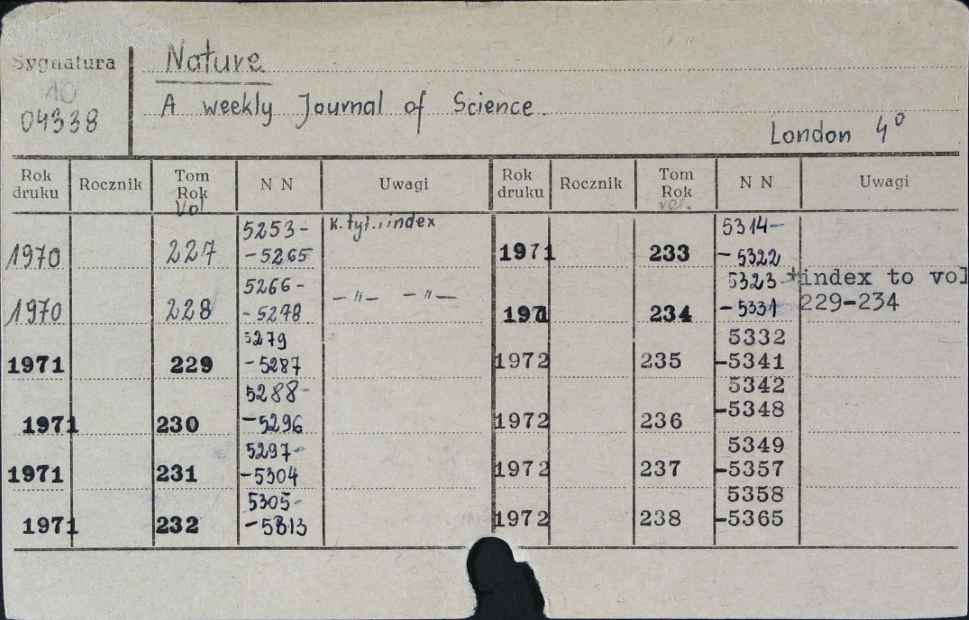 Sygnatura
10
04338
Nature
A weekly Journal of Science.
London 4°
Rok druku Rocznik Tom Rok Vol N N Uwagi Rok druku Rocznik Tom Rok vol. N N Uwagi
1970 227 5253- -5265 k. tyt., index
1970 228 5266- -5278 -"- -"-
1971 229 5279 -5287
1971 230 5288- -5296
1971 231 5297- -5304
1971 232 5305- -5313
1971 233 5314- -5322
1971 234 5323- -5331 +index to vol 229-234
1972 235 5332 -5341
1972 236 5342 -5348
1972 237 5349 -5357
1972 238 5358 -5365